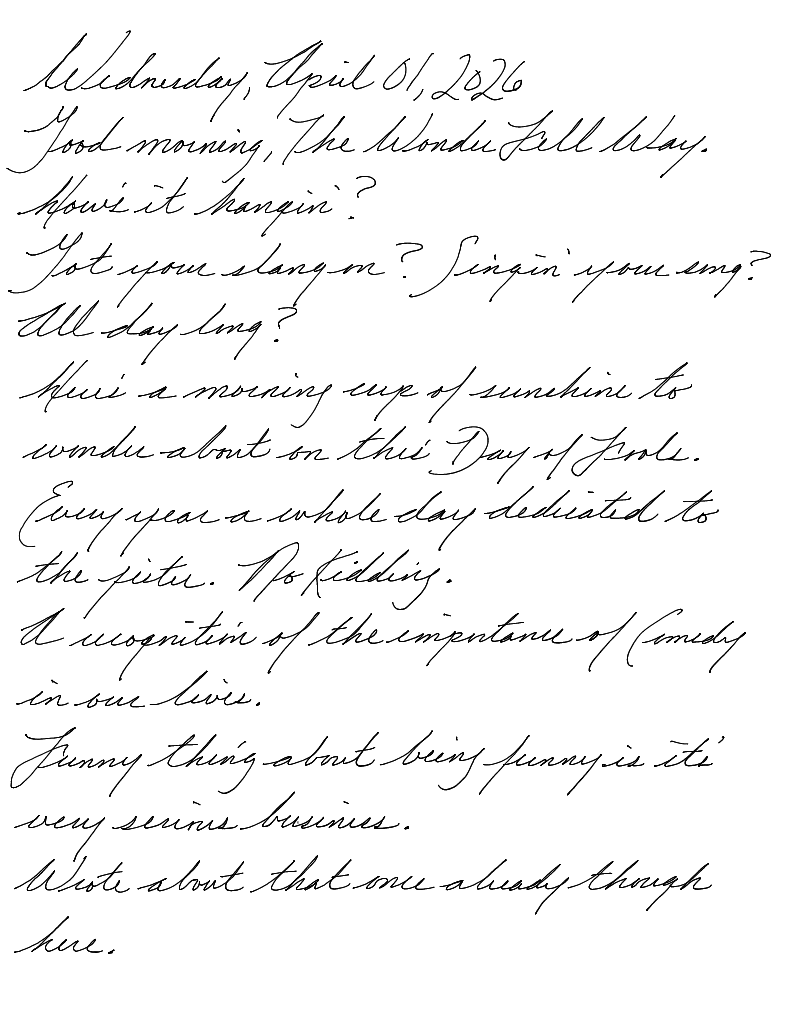 Wednesday, April 01, 2026
Good morning, The Wonder Fell Way.
How's it hangin'?
Got your slang on? Singin' your song?
All day long?
Here's a morning cup of sunshine to
wonder about on this Day of Fools.
Every year a whole day dedicated to
the jester. No Kidding.
A recognition of the importance of Comedy
in our lives.
Funny thing about being funny is it's
very serious business.
Wrote about that once already though
here.